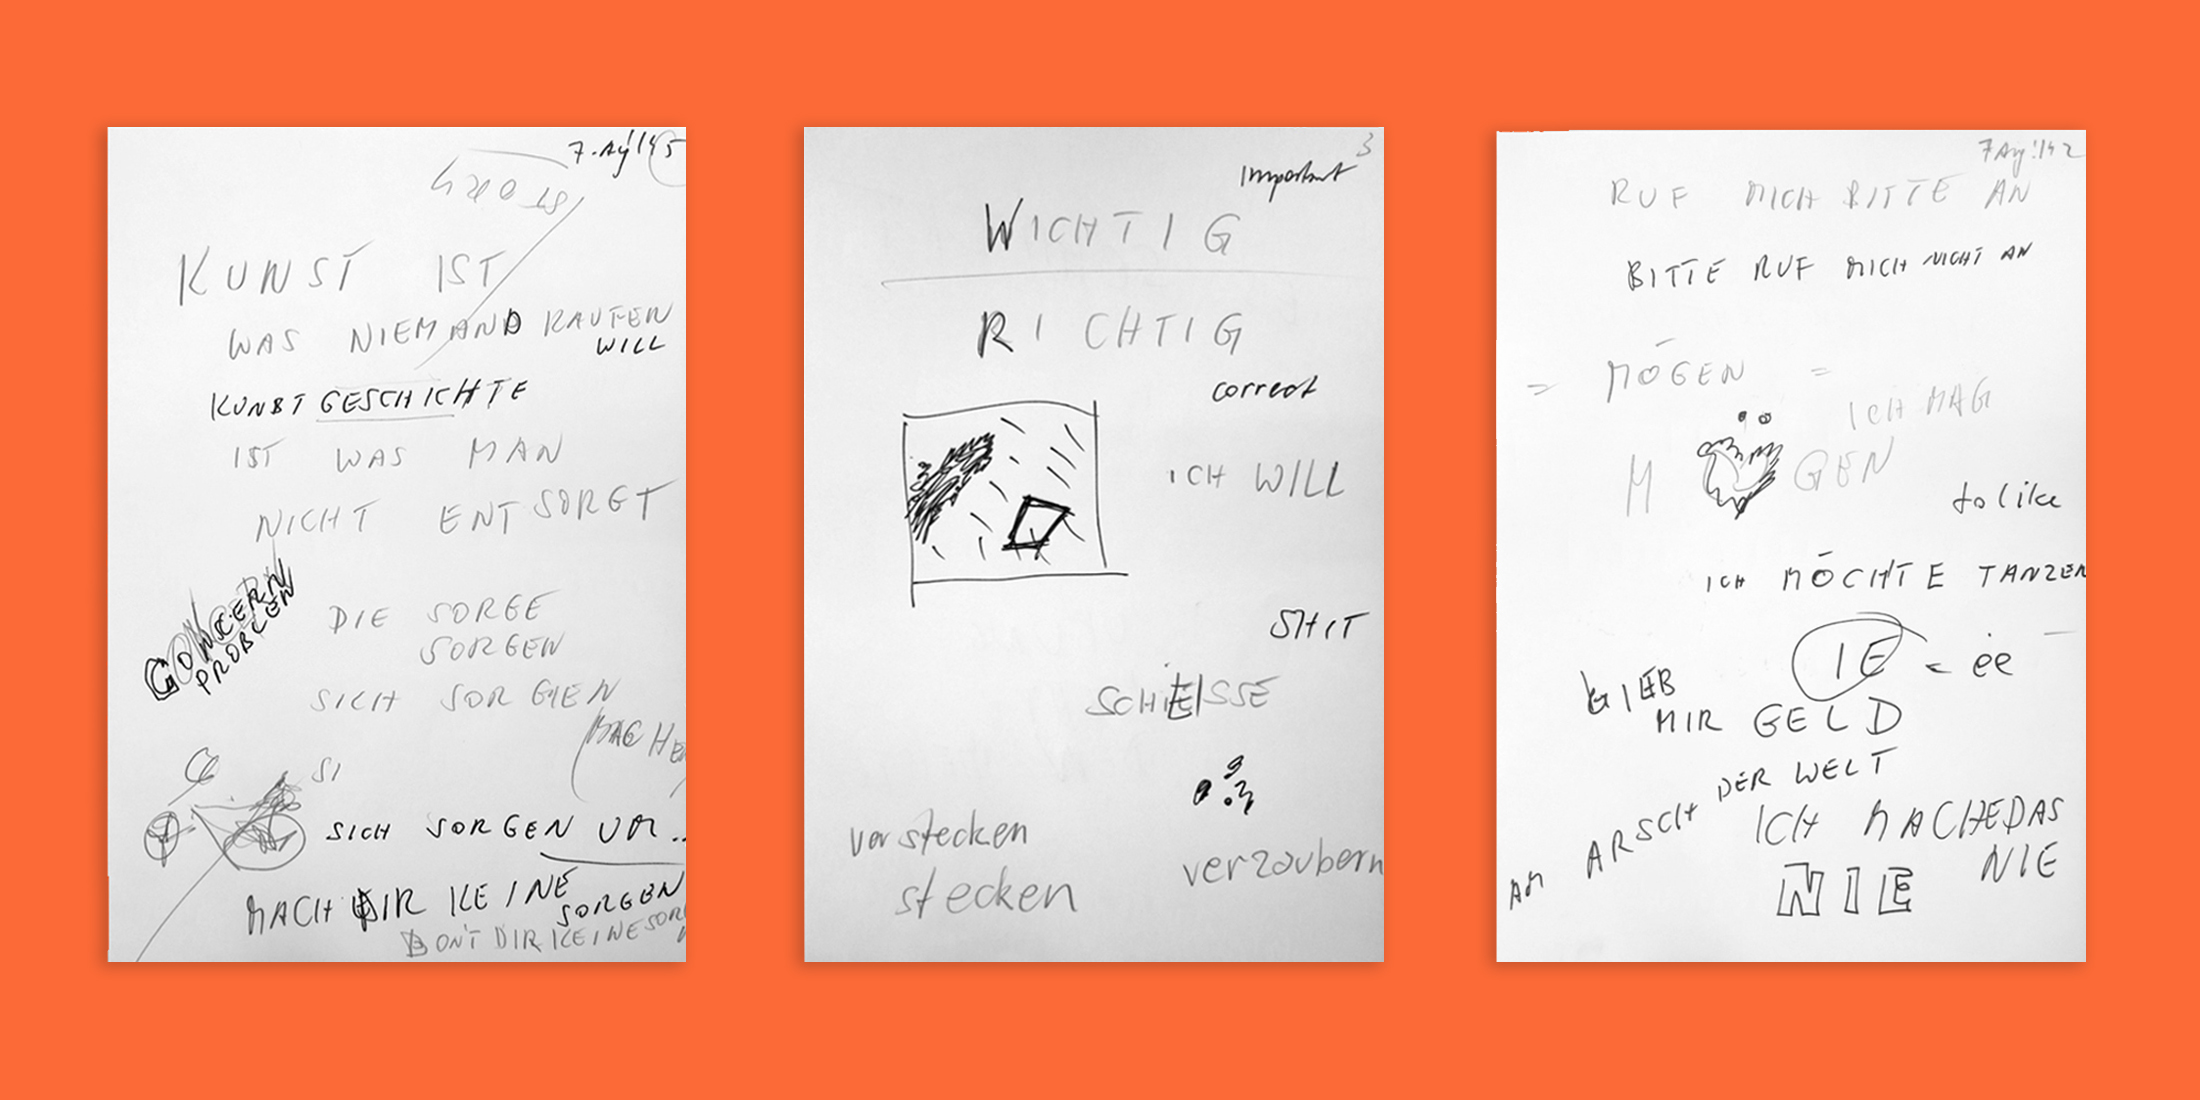 7. Aug '14 5
KUNST IST
WAS NIEMAND KAUFEN
WILL
KUNST GESCHICHTE
IST WAS MAN
NICHT ENTSORGT
CONCERN
PROBLEM
DIE SORGE
SORGEN
SICH SORGEN
MACHEN
SI
SICH SORGEN UM..
MACH DIR KEINE
SORGEN
DON'T DIR KEINE SOR
3
important
WICHTIG
RICHTIG
correct
ICH WILL
SHIT
SCHEISSE
verstecken
stecken
verzaubern
7 Aug '14 2
RUF MICH BITTE AN
BITTE RUF MICH NICHT AN
= MÖGEN =
ICH MAG
M GEN
to like
ICH MÖCHTE TANZEN
IE = ee
GIEB
MIR GELD
AM ARSCH DER WELT
ICH MACHE DAS
NIE
NIE